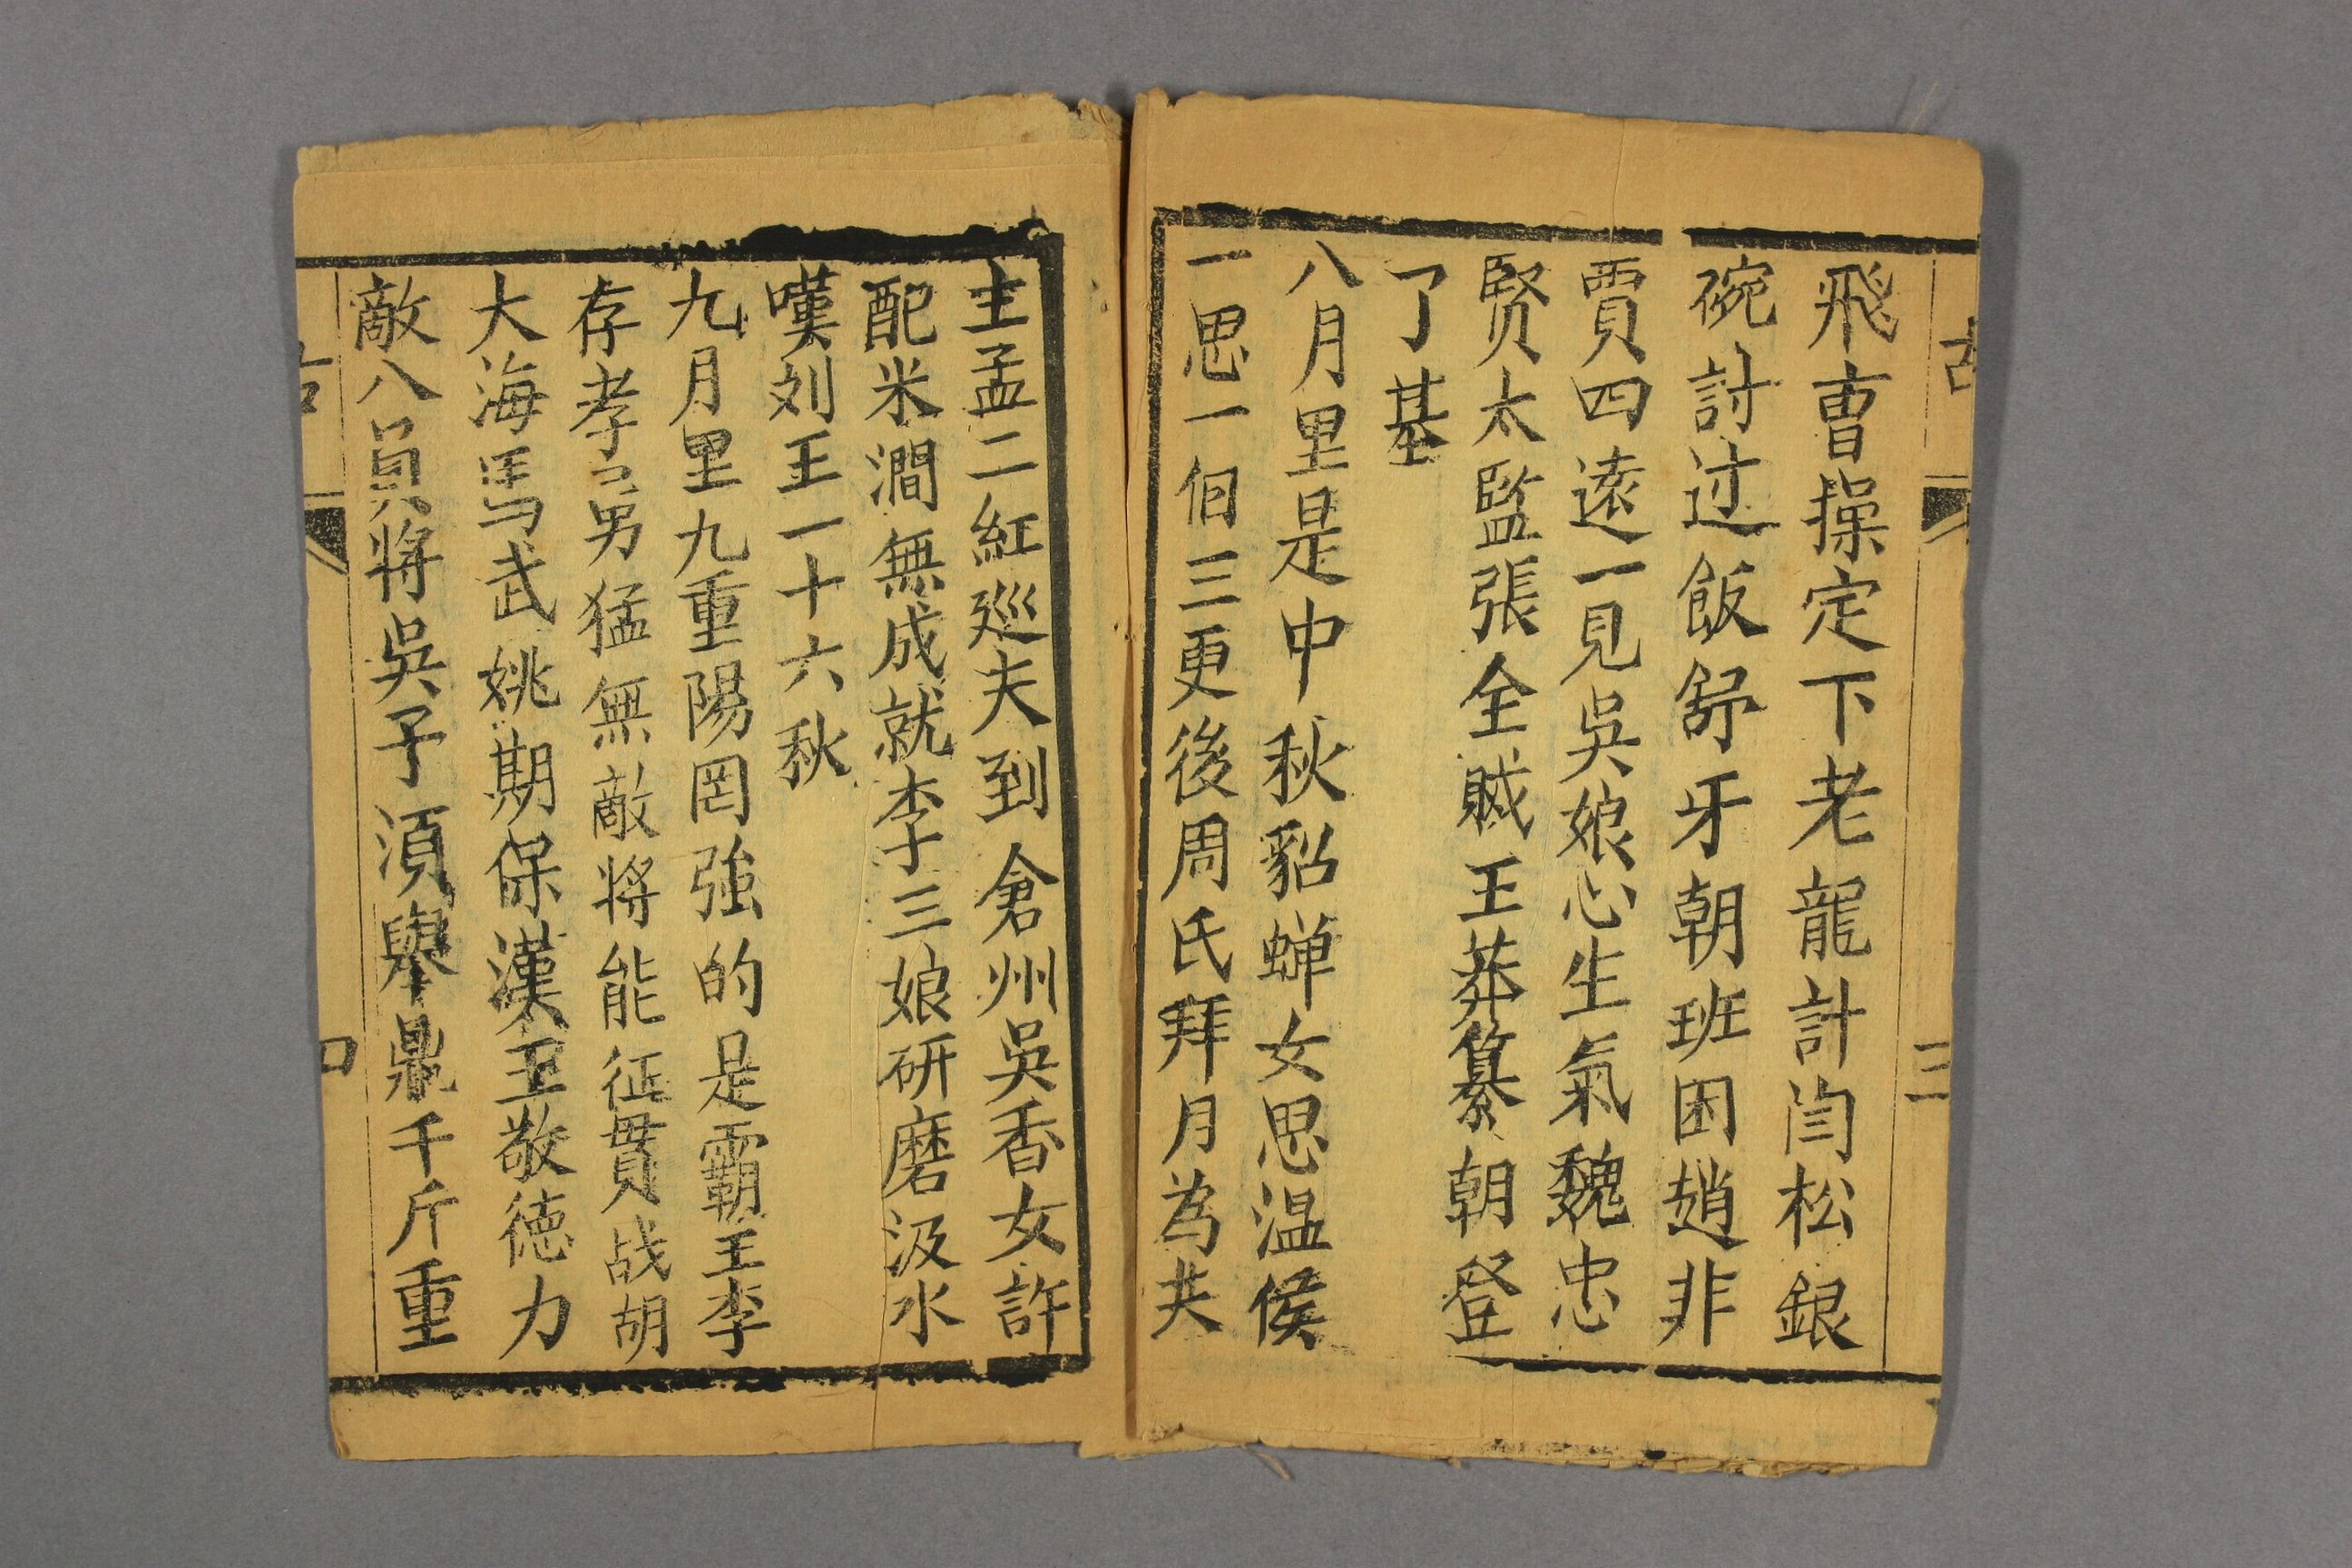 飛曹操定下老龍計閆松銀
碗討过飯舒牙朝班困趙非
賈四遠一見吳娘心生氣魏忠
贤太監張全贼王莽篡朝登
了基
八月里是中秋貂蝉女思温侯
一思一個三更後周氏拜月為夫
主孟二紅廵夫到倉州吳香女許
配米澗無成就李三娘研磨汲水
嘆刘王一十六秋
九月里九重陽罡強的是霸王李
存孝勇猛無敵将能征貫战胡
大海馬武姚期保漢王敬徳力
敵八員将吳子湏舉鼎千斤重
三